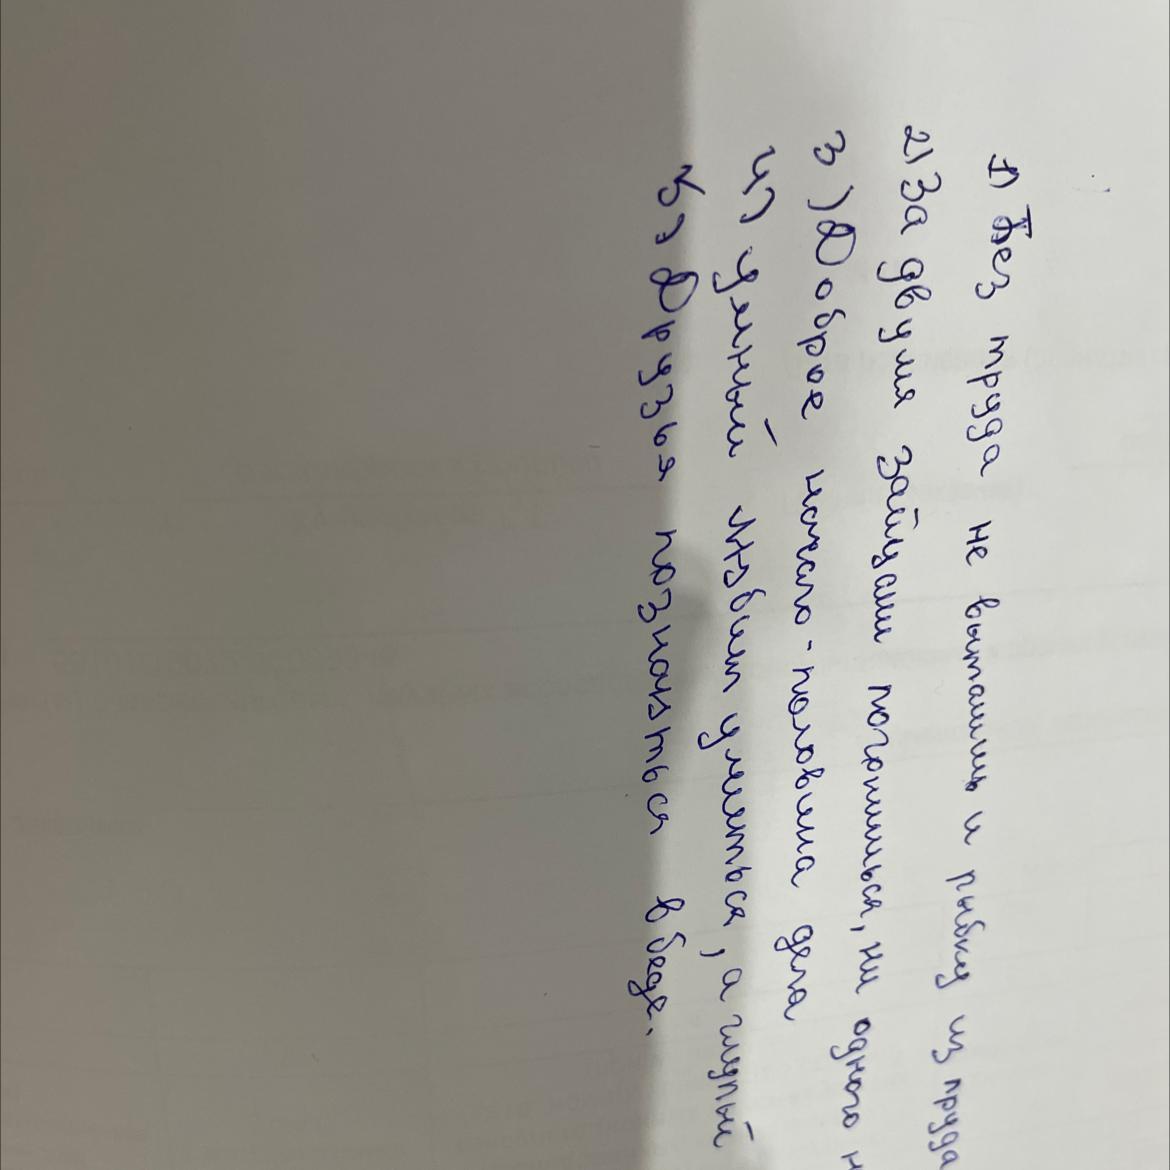 1) Без труда не выташишь и рыбку из пруда
2) За двумя зайцами погонишься, ни одного н
3) Доброе начало - половина дела
4) Умный любит учиться, а глупый
5) Друзья познаються в беде.